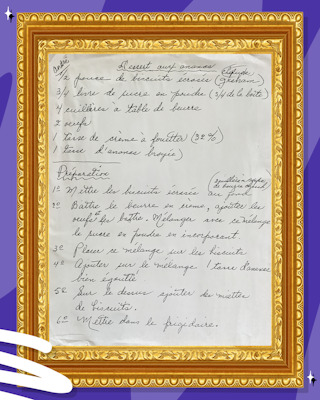 Dessert aux ananas
1/2 pouce de biscuits écrasés (Graham)
3/4 livre de sucre en poudre (3/4 de la boîte)
4 cuillères à table de beurre
2 oeufs
1 tasse de crème à fouetter (32%)
1 tasse d'ananas broyés)
Préparation
1° Mettre les biscuits écrasés
2° Battre le beurre en crème, ajouter les
oeufs battre. Mélanger avec ce mélange
le sucre en poudre en incorporant
3° Placer ce mélange sur les biscuits
4° Ajouter sur le mélange 1 tasse d'ananas
bien égoutté
5° Sur le dessus ajouter des miettes
de biscuits.
6° Mettre dans le frigidaire.